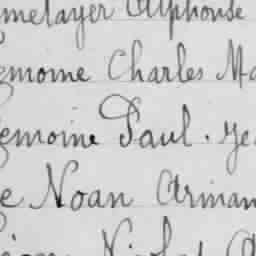 melayer Alphonse
emoine Charles Ma
Lemoine Paul. Je
e Noan Arman
Nicolas